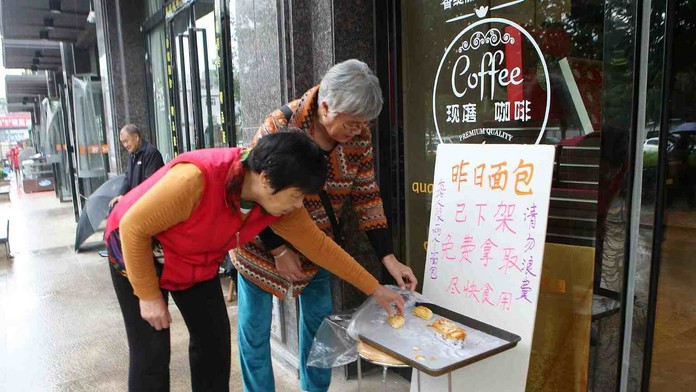 Coffee
现磨 咖啡
PREMIUM QUALITY
昨日面包
已下架
免费拿取
尽快食用
请勿浪费
qua